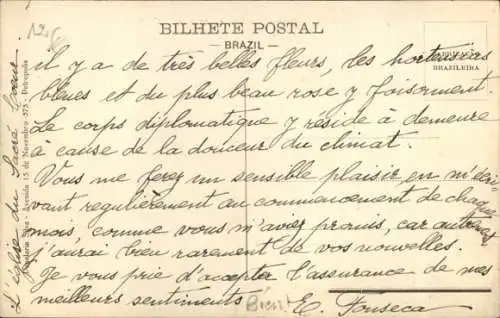 BILHETE POSTAL
— BRAZIL —
BRAZILEIRA
il y a de très belles fleurs, les hortensias
bleues et du plus beau rose y foisonnent.
Le corps diplomatique y réside à demeure
à cause de la douceur du climat.
Vous me ferez un sensible plaisir en m'écri-
vant regulièrement au commencement de chaque
mois comme vous m'aviez promis, car autrement
j'aurai bien rarement de vos nouvelles.
Je vous prie d'accepter l'assurance de mes
meilleurs sentiments
Bien!
E. Fonseca
L'église du Sacré Coeur
Papelaria Silva - Avenida 15 de Novembro 575 - Petropolis